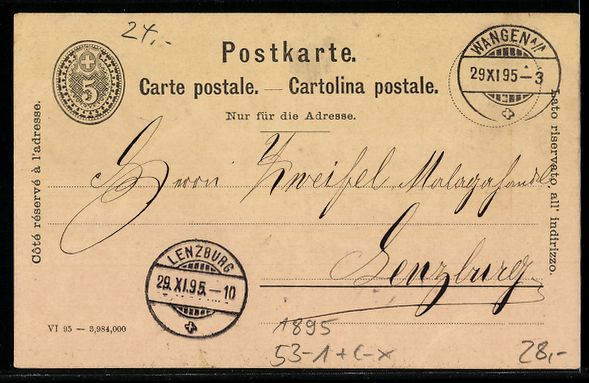 24,-
Postkarte.
Carte postale. — Cartolina postale.
Nur für die Adresse.
5
WANGEN A/A
29 XI 95 – 3
Côté réservé à l'adresse.
Lato riservato all' indirizzo.
Herrn Zweifel Malagahandlr
Lenzburg
LENZBURG
29. XI. 95. – 10
VI 95 — 3,984,000
1895
53-1+C-x
28,-